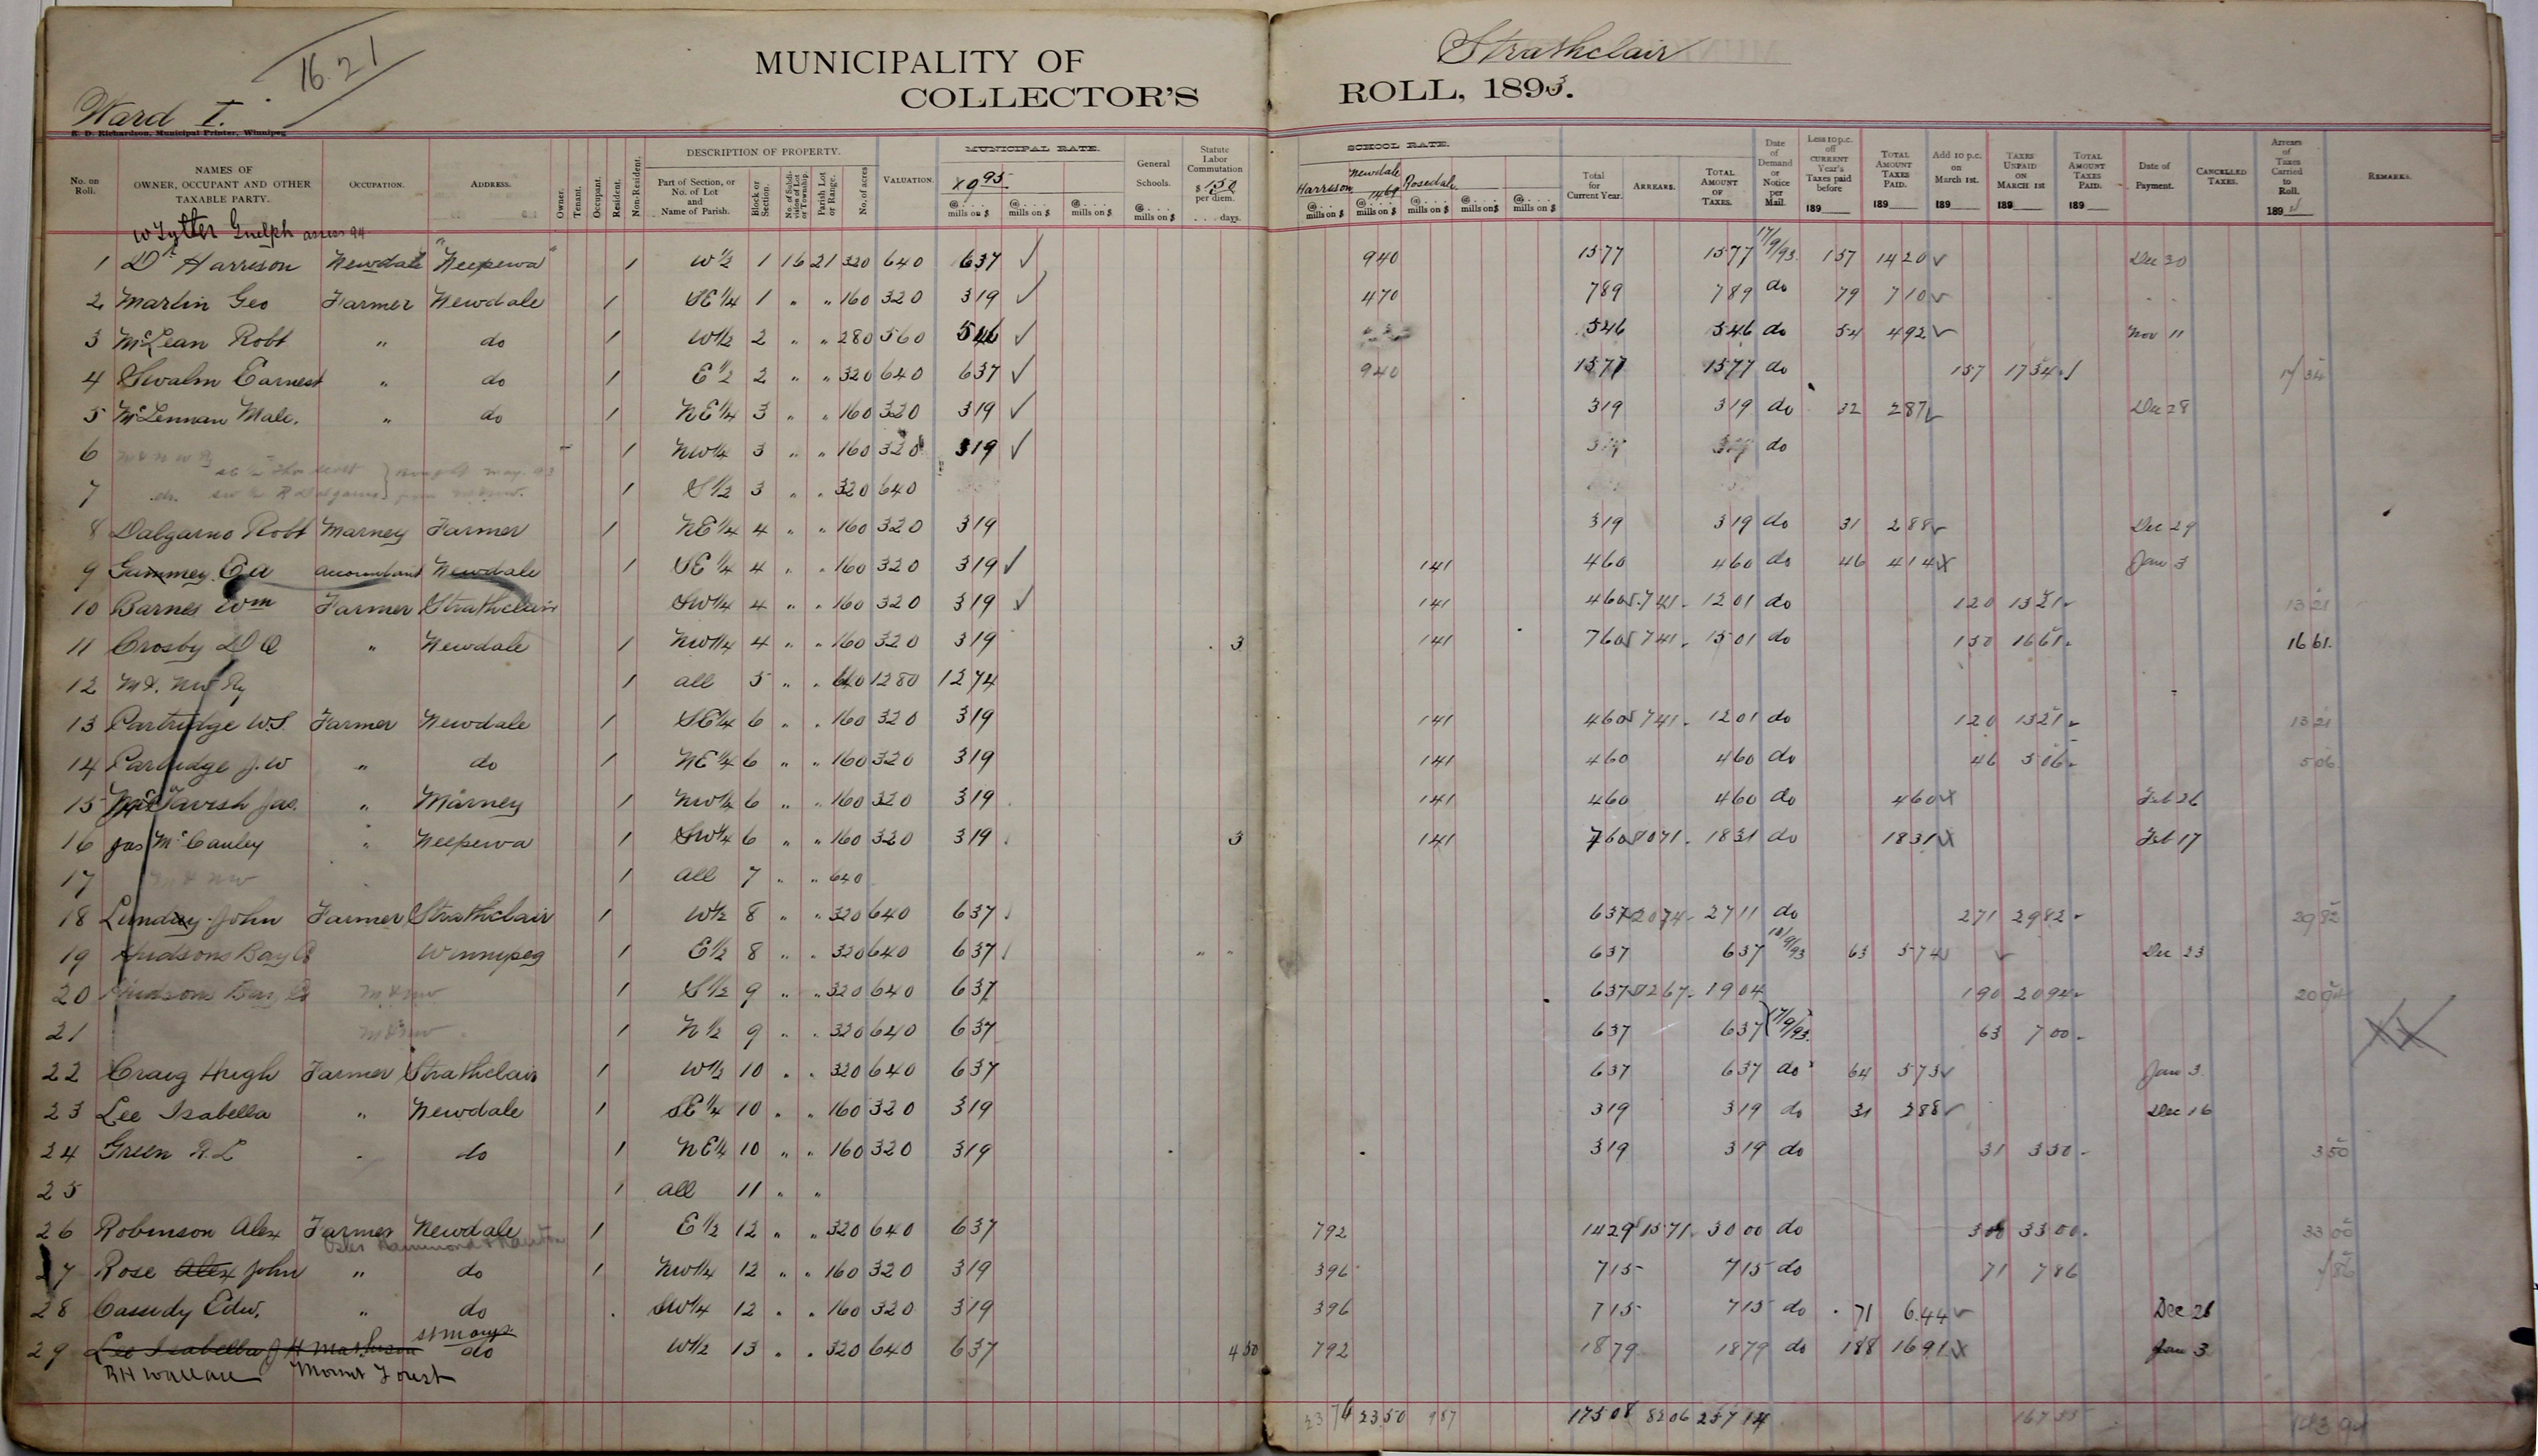 16.21
MUNICIPALITY OF Strathclair
COLLECTOR'S ROLL, 1893.
Ward I.
R. D. Richardson, Municipal Printer, Winnipeg
No. on Roll. NAMES OF OWNER, OCCUPANT AND OTHER TAXABLE PARTY. OCCUPATION. ADDRESS. Owner. Tenant. Occupant. Resident. Non-Resident. DESCRIPTION OF PROPERTY. Part of Section, or No. of Lot and Name of Parish. Block or Section. No. of Subdivision of Lot or Township. Parish Lot or Range. No. of acres VALUATION. MUNICIPAL RATE. X 9 95 @.... mills on $ @.... mills on $ @.... mills on $ @.... mills on $ General Schools. @.... mills on $ Statute Labor Commutation $ 1.50 per diem. .... days. SCHOOL RATE. Harrison @.... mills on $ Newdale 1469 @.... mills on $ Rosedale @.... mills on $ @.... mills on $ @.... mills on $ Total for Current Year. ARREARS. TOTAL AMOUNT OF TAXES. Date of Demand or Notice per Mail. Less 10 p.c. off CURRENT Year's Taxes paid before 189 TOTAL AMOUNT TAXES PAID. 189 Add 10 p.c. on March 1st. 189 TAXES UNPAID ON MARCH 1ST 189 TOTAL AMOUNT TAXES PAID. 189 Date of Payment. CANCELLED TAXES. Arrears of Taxes Carried to Roll. 189 REMARKS.
Guelph assess 94
1 Dr Harrison Newdale "Neepewa" / W 1/2 1 16 21 320 640 637 ✓ 940 1577 1577 17/9/93 157 1420 ✓ Dec 30
2 Martin Geo Farmer Newdale / SE 1/4 1 " " 160 320 319 ✓ 470 789 789 do 79 710 ✓
3 McLean Robt " do / W 1/2 2 " " 280 560 546 ✓ 546 546 do 54 492 ✓ Nov 11
4 Swalm Earnest " do / E 1/2 2 " " 320 640 637 ✓ 940 1577 1577 do 157 1734 ✓ 17 34
5 McLennan Malc. " do / NE 1/4 3 " " 160 320 319 ✓ 319 319 do 32 287 ✓ Dec 28
6 / NW 1/4 3 " " 160 320 319 ✓ do
7 / S 1/2 3 " " 320 640
8 Dalgarno Robt Marney Farmer / NE 1/4 4 " " 160 320 319 319 319 do 31 288 ✓ Dec 29
9 accountant Newdale / SE 1/4 4 " " 160 320 319 ✓ 141 460 460 do 46 414 X Jan 3
10 Barnes Wm Farmer Strathclair SW 1/4 4 " " 160 320 319 ✓ 141 460 741 1201 do 120 1321 1321
11 Crosby " Newdale / NW 1/4 4 " " 160 320 319 3 141 760 741 1501 do 150 1661 1661
12 M & NW Ry / all 5 " " 640 1280 1274
13 Partridge W.S. Farmer Newdale / SE 1/4 6 " " 160 320 319 141 460 741 1201 do 120 1321 1321
14 Partridge J.W " do / NE 1/4 6 " " 160 320 319 141 460 460 do 46 506 506
15 McTavish Jas. " Marney / NW 1/4 6 " " 160 320 319 141 460 460 do 460 X Feb 26
16 Jas McCauley " Neepewa / SW 1/4 6 " " 160 320 319 3 141 760 1071 1831 do 1831 X Feb 17
17 M & NW / all 7 " " 640
18 John Farmer Strathclair / W 1/2 8 " " 320 640 637 637 2074 2711 do 271 2982 2982
19 Hudsons Bay Co Winnipeg / E 1/2 8 " " 320 640 637 " " 637 637 18/9/93 63 574 ✓ Dec 23
20 Hudsons Bay Co M & NW / S 1/2 9 " " 320 640 637 637 1267 1904 190 2094 2094
21 M & NW / N 1/2 9 " " 320 640 637 637 637 17/9/93 63 700 XX
22 Craig Hugh Farmer Strathclair / W 1/2 10 " " 320 640 637 637 637 do 64 573 ✓ Jan 3
23 Lee Isabella " Newdale / SE 1/4 10 " " 160 320 319 319 319 do 31 288 ✓ Dec 16
24 Green R.L " do / NE 1/4 10 " " 160 320 319 319 319 do 31 350 350
25 / all 11 " "
26 Robinson Alex Farmer Newdale / E 1/2 12 " " 320 640 637 792 1429 1571 3000 do 300 3300 3300
27 Rose Alex John " do / NW 1/4 12 " " 160 320 319 396 715 715 do 71 786 786
28 Cassidy Edw. " do SW 1/4 12 " " 160 320 319 396 715 715 do 71 644 ✓ Dec 26
St Marys
29 Lee Isabella do W 1/2 13 " " 320 640 637 4 50 792 1879 1879 do 188 1691 X Jan 3
RH Wallace Mount Forest
2376 2350 987 17508 8206 25714